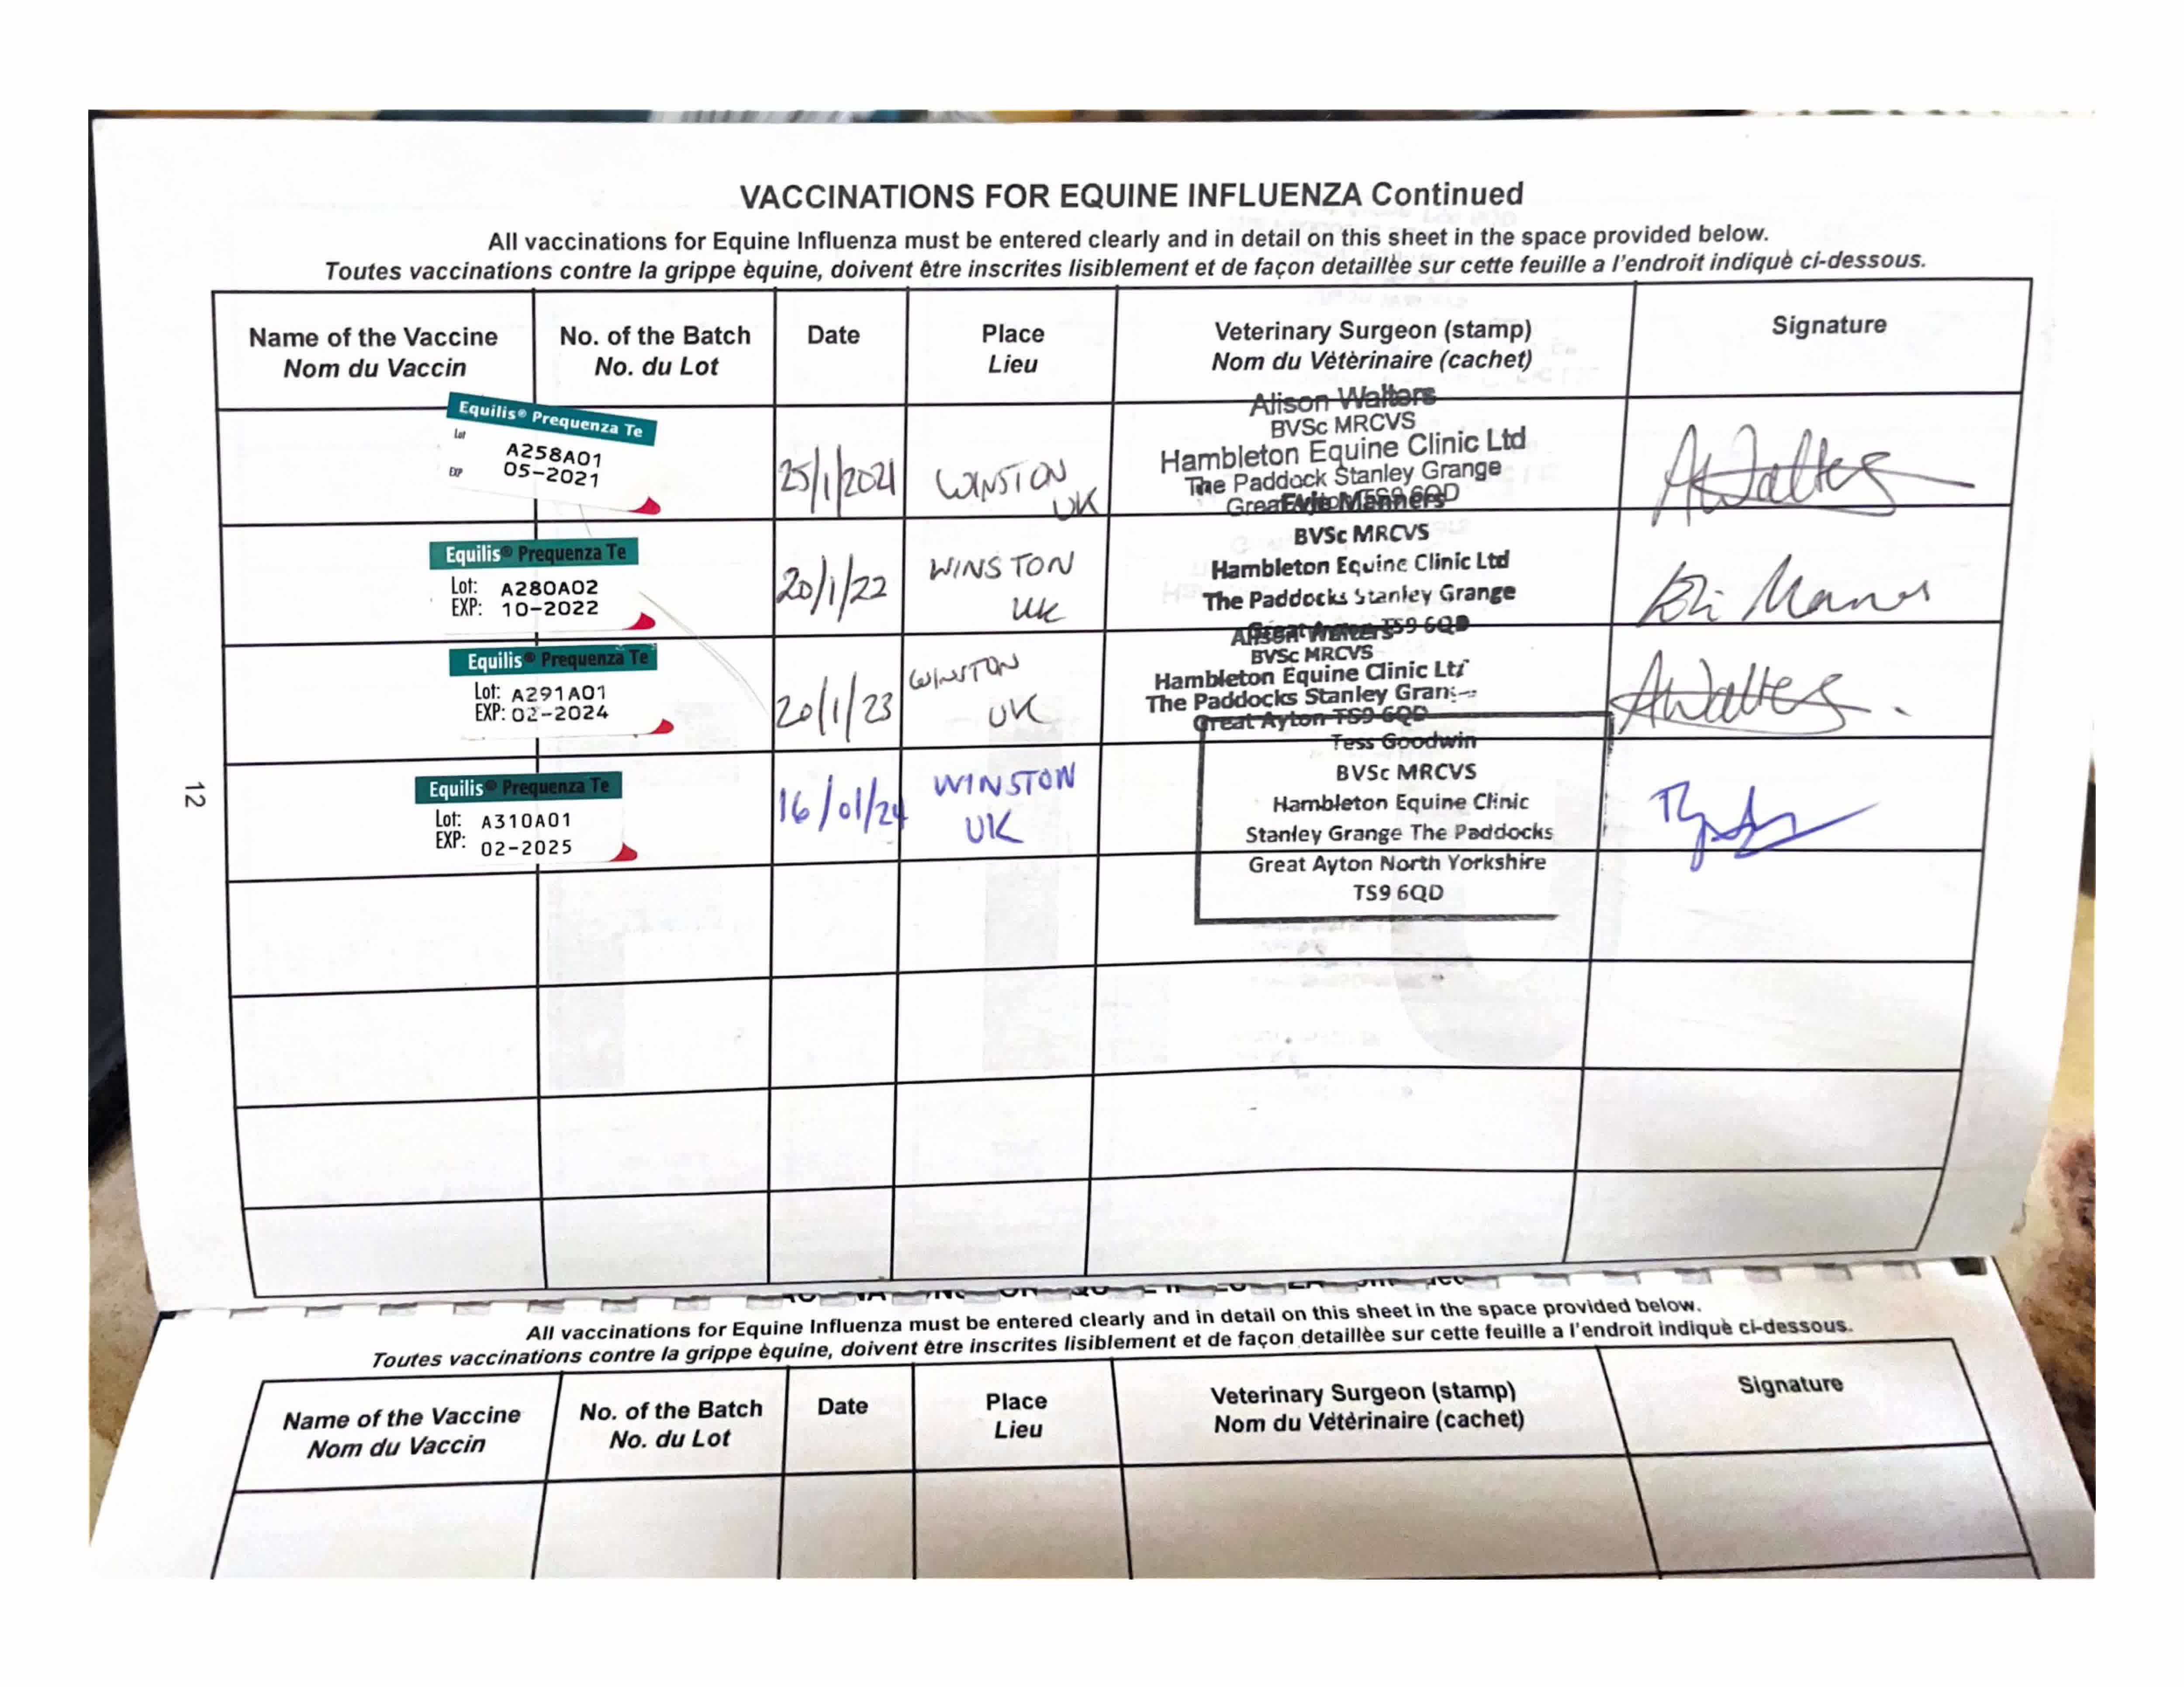 VACCINATIONS FOR EQUINE INFLUENZA Continued
All vaccinations for Equine Influenza must be entered clearly and in detail on this sheet in the space provided below.
Toutes vaccinations contre la grippe èquine, doivent être inscrites lisiblement et de façon detaillèe sur cette feuille a l'endroit indiquè ci-dessous.
Name of the Vaccine
Nom du Vaccin
No. of the Batch
No. du Lot
Date
Place
Lieu
Veterinary Surgeon (stamp)
Nom du Vètèrinaire (cachet)
Signature
Equilis® Prequenza Te
Lot A258A01
EXP 05-2021
25/1/2021
WINSTON
UK
Alison Walters
BVSc MRCVS
Hambleton Equine Clinic Ltd
The Paddock Stanley Grange
Great Ayton TS9 6QD
AWalters
Equilis® Prequenza Te
Lot: A280A02
EXP: 10-2022
20/1/22
WINSTON
UK
Evie Manners
BVSc MRCVS
Hambleton Equine Clinic Ltd
The Paddocks Stanley Grange
Great Ayton TS9 6QD
Equilis® Prequenza Te
Lot: A291A01
EXP: 02-2024
20/1/23
WINSTON
UK
Alison Walters
BVSc MRCVS
Hambleton Equine Clinic Lt
The Paddocks Stanley Gran
Great Ayton TS9 6QD
AWalters.
Equilis® Prequenza Te
Lot: A310A01
EXP: 02-2025
16/01/24
WINSTON
UK
Tess Goodwin
BVSc MRCVS
Hambleton Equine Clinic
Stanley Grange The Paddocks
Great Ayton North Yorkshire
TS9 6QD
12
All vaccinations for Equine Influenza must be entered clearly and in detail on this sheet in the space provided below.
Toutes vaccinations contre la grippe èquine, doivent être inscrites lisiblement et de façon detaillèe sur cette feuille a l'endroit indiquè ci-dessous.
Name of the Vaccine
Nom du Vaccin
No. of the Batch
No. du Lot
Date
Place
Lieu
Veterinary Surgeon (stamp)
Nom du Vètèrinaire (cachet)
Signature